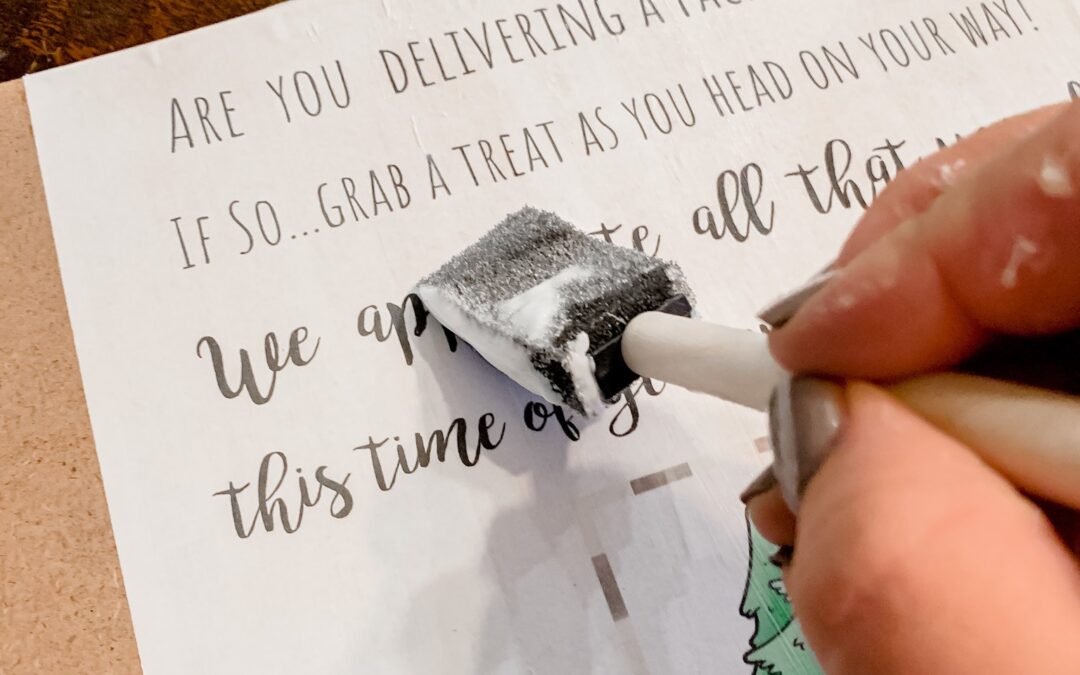 ARE YOU DELIVERING A
IF SO...GRAB A TREAT AS YOU HEAD ON YOUR WAY!
We all that
this time of